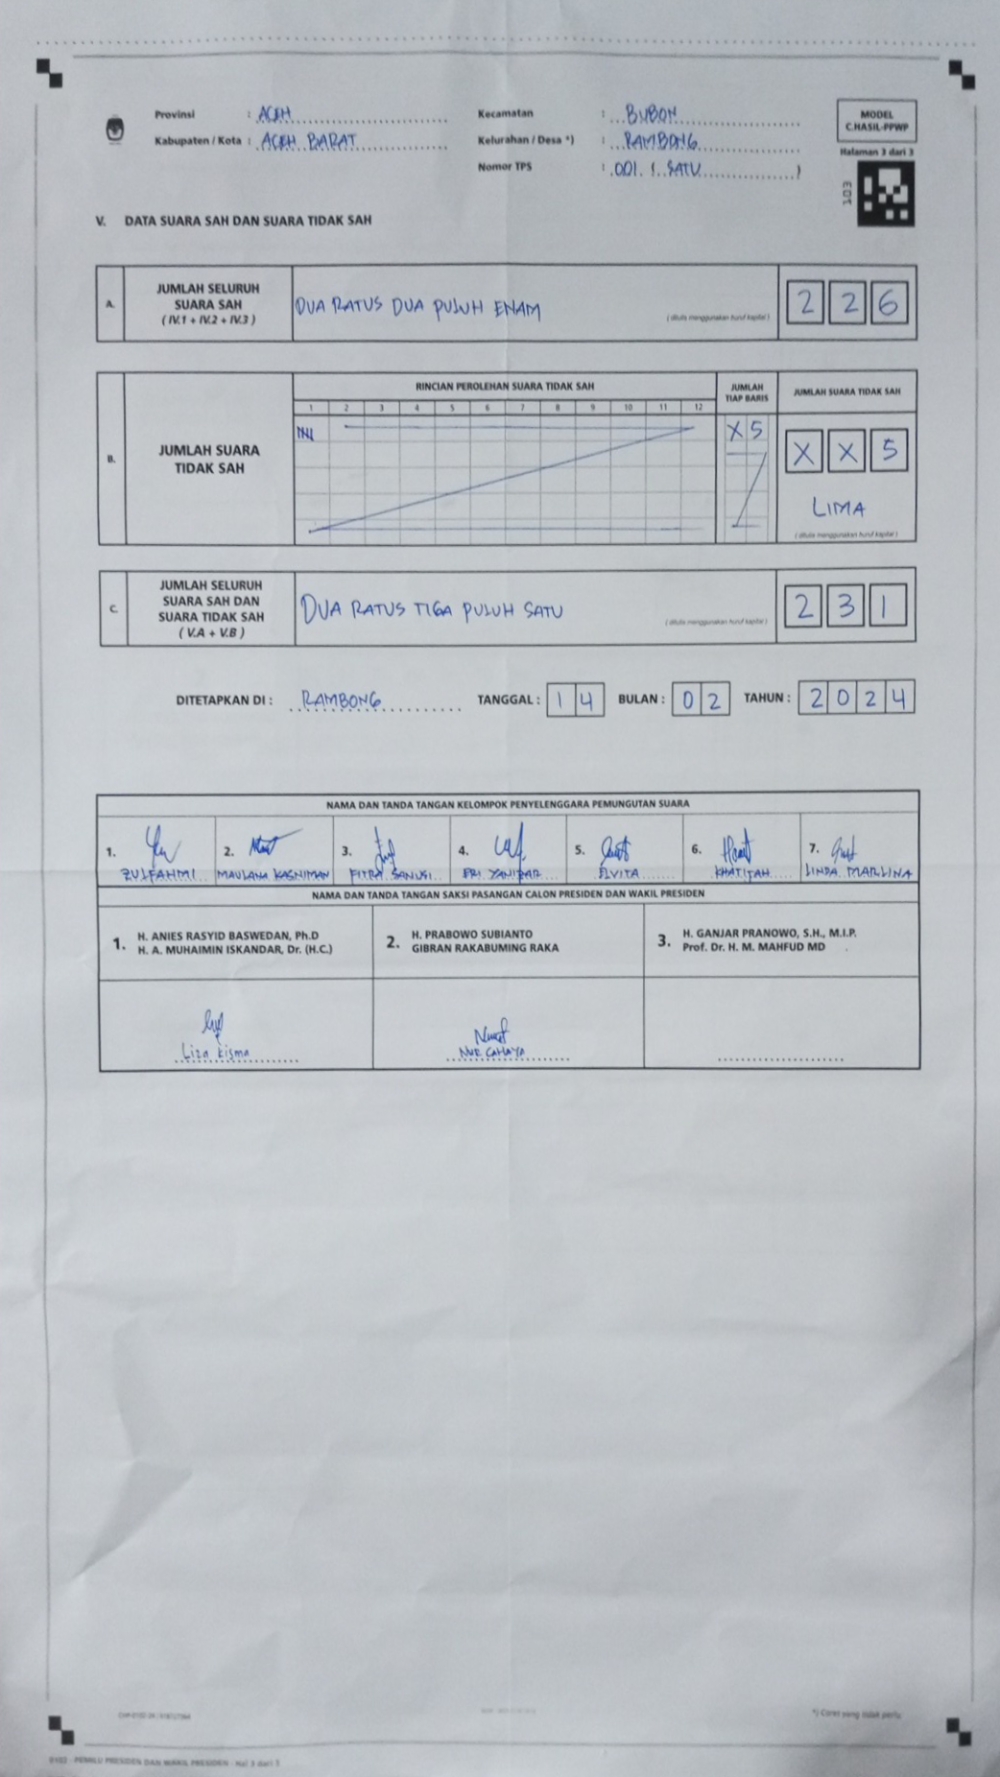 Provinsi : ACEH
Kabupaten / Kota : ACEH BARAT
Kecamatan : BUBON
Kelurahan / Desa *) : RAMBONG
Nomor TPS : 001 ( SATU )
MODEL
C.HASIL-PPWP
Halaman 3 dari 3
103
V. DATA SUARA SAH DAN SUARA TIDAK SAH
A. JUMLAH SELURUH
SUARA SAH
( IV.1 + IV.2 + IV.3 )
DUA RATUS DUA PULUH ENAM
( ditulis menggunakan huruf kapital )
2 2 6
B. JUMLAH SUARA
TIDAK SAH
RINCIAN PEROLEHAN SUARA TIDAK SAH
1 2 3 4 5 6 7 8 9 10 11 12
JUMLAH
TIAP BARIS
X 5
JUMLAH SUARA TIDAK SAH
X X 5
LIMA
( ditulis menggunakan huruf kapital )
C. JUMLAH SELURUH
SUARA SAH DAN
SUARA TIDAK SAH
( V.A + V.B )
DUA RATUS TIGA PULUH SATU
( ditulis menggunakan huruf kapital )
2 3 1
DITETAPKAN DI : RAMBONG TANGGAL : 14 BULAN : 02 TAHUN : 2024
NAMA DAN TANDA TANGAN KELOMPOK PENYELENGGARA PEMUNGUTAN SUARA
1. 2. 3. 4. 5. 6. 7.
ZULFAHMI MAULANA KASNIMAN FITRA SANUSI ELVITA LINDA MARLINA
NAMA DAN TANDA TANGAN SAKSI PASANGAN CALON PRESIDEN DAN WAKIL PRESIDEN
1. H. ANIES RASYID BASWEDAN, Ph.D
H. A. MUHAIMIN ISKANDAR, Dr. (H.C.)
2. H. PRABOWO SUBIANTO
GIBRAN RAKABUMING RAKA
3. H. GANJAR PRANOWO, S.H., M.I.P.
Prof. Dr. H. M. MAHFUD MD
Liza Risma
NUR CAHAYA
*) Coret yang tidak perlu
0102 - PEMILU PRESIDEN DAN WAKIL PRESIDEN - Hal 3 dari 3